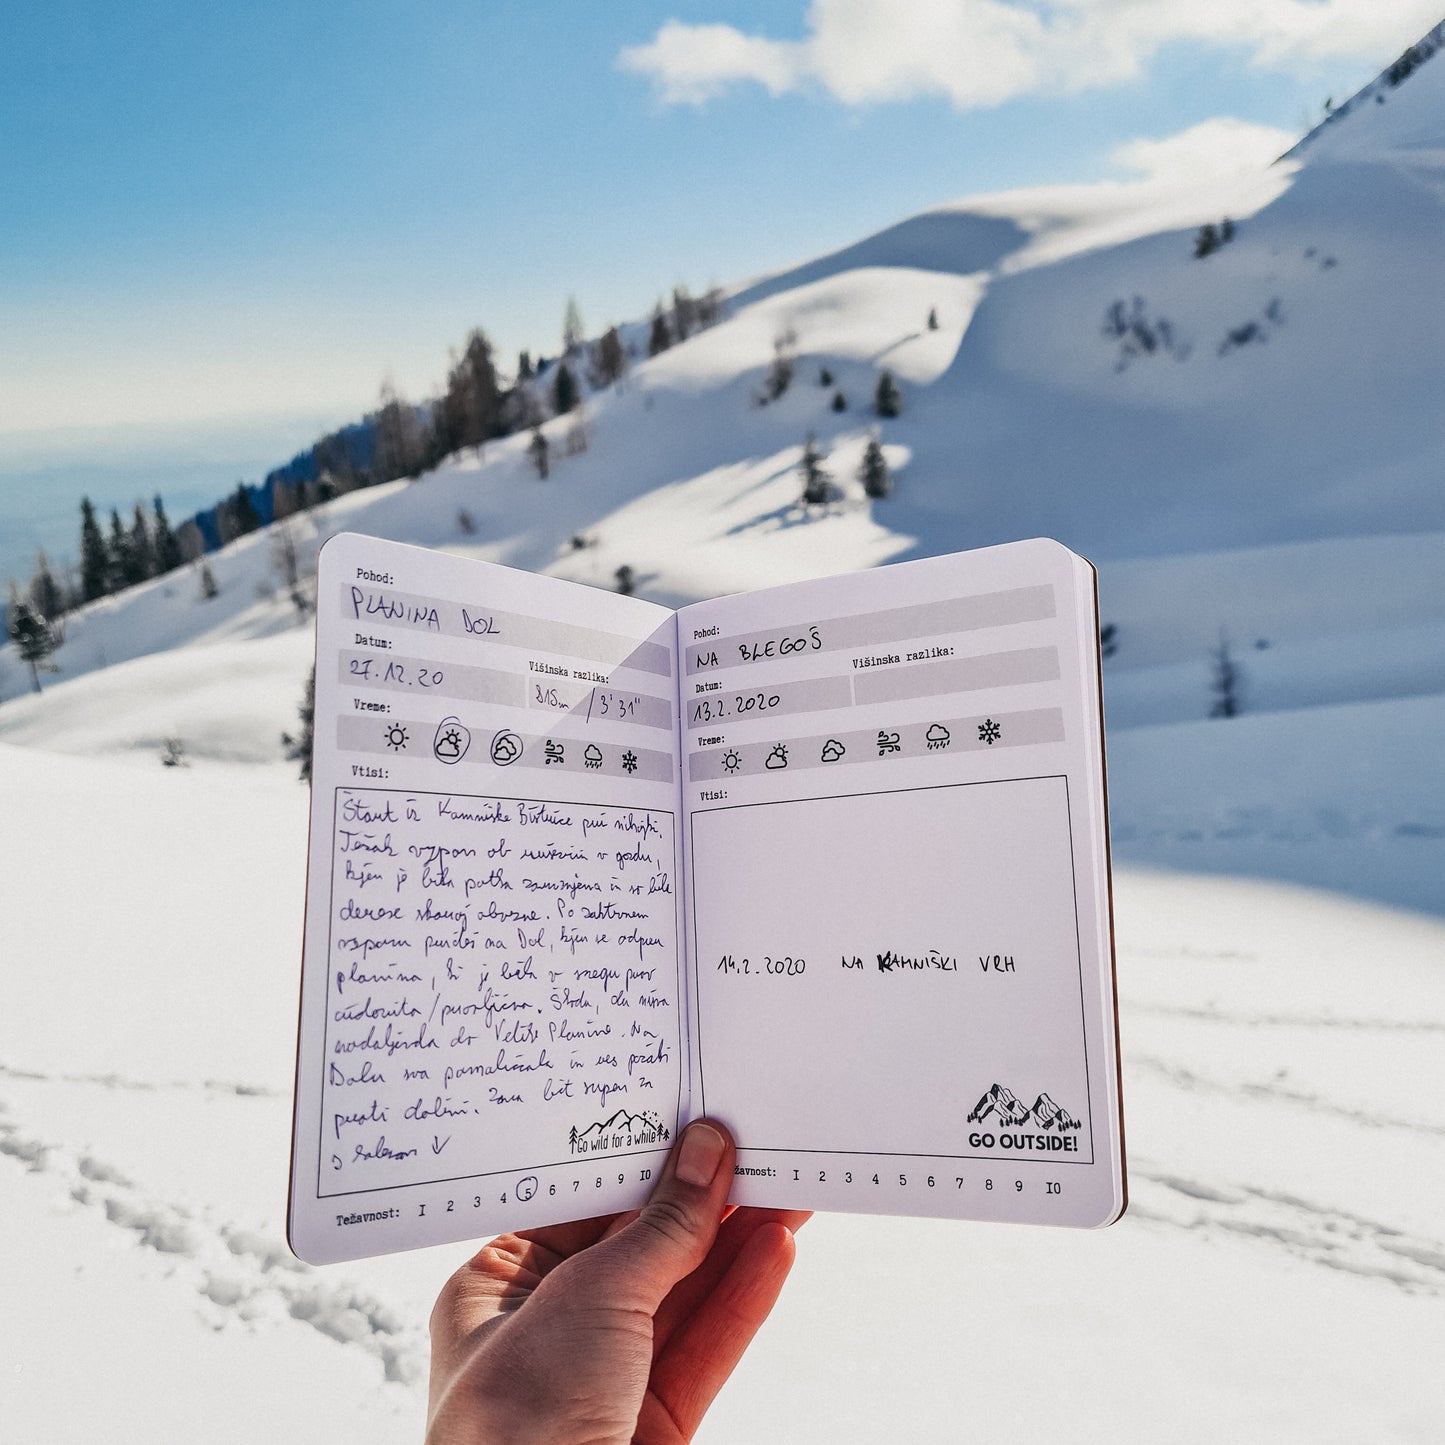 Pohod:
PLANINA DOL
Datum:
27.12.20
Višinska razlika:
815m / 3'31"
Vreme:
Vtisi:
Štart iz Kamniške Bistrice pri
Težak vzpon ob v gozdu,
kjer je bila potka in so bile
derese skoraj obvezne. Po zahtevnem
vzponu prideš na Dol, kjer se odpre
planina, ki je bila v snegu prav
čudovita/pravljična. Škoda, da nisva
nadaljevala do Velike Planine. Na
Dolu sva pomalicala in
proti dolini. bil super za
Go wild for a while
Težavnost: 1 2 3 4 5 6 7 8 9 10
Pohod:
NA BLEGOŠ
Datum:
13.2.2020
Višinska razlika:
Vreme:
Vtisi:
14.2.2020 NA KAMNIŠKI VRH
GO OUTSIDE!
žavnost: 1 2 3 4 5 6 7 8 9 10